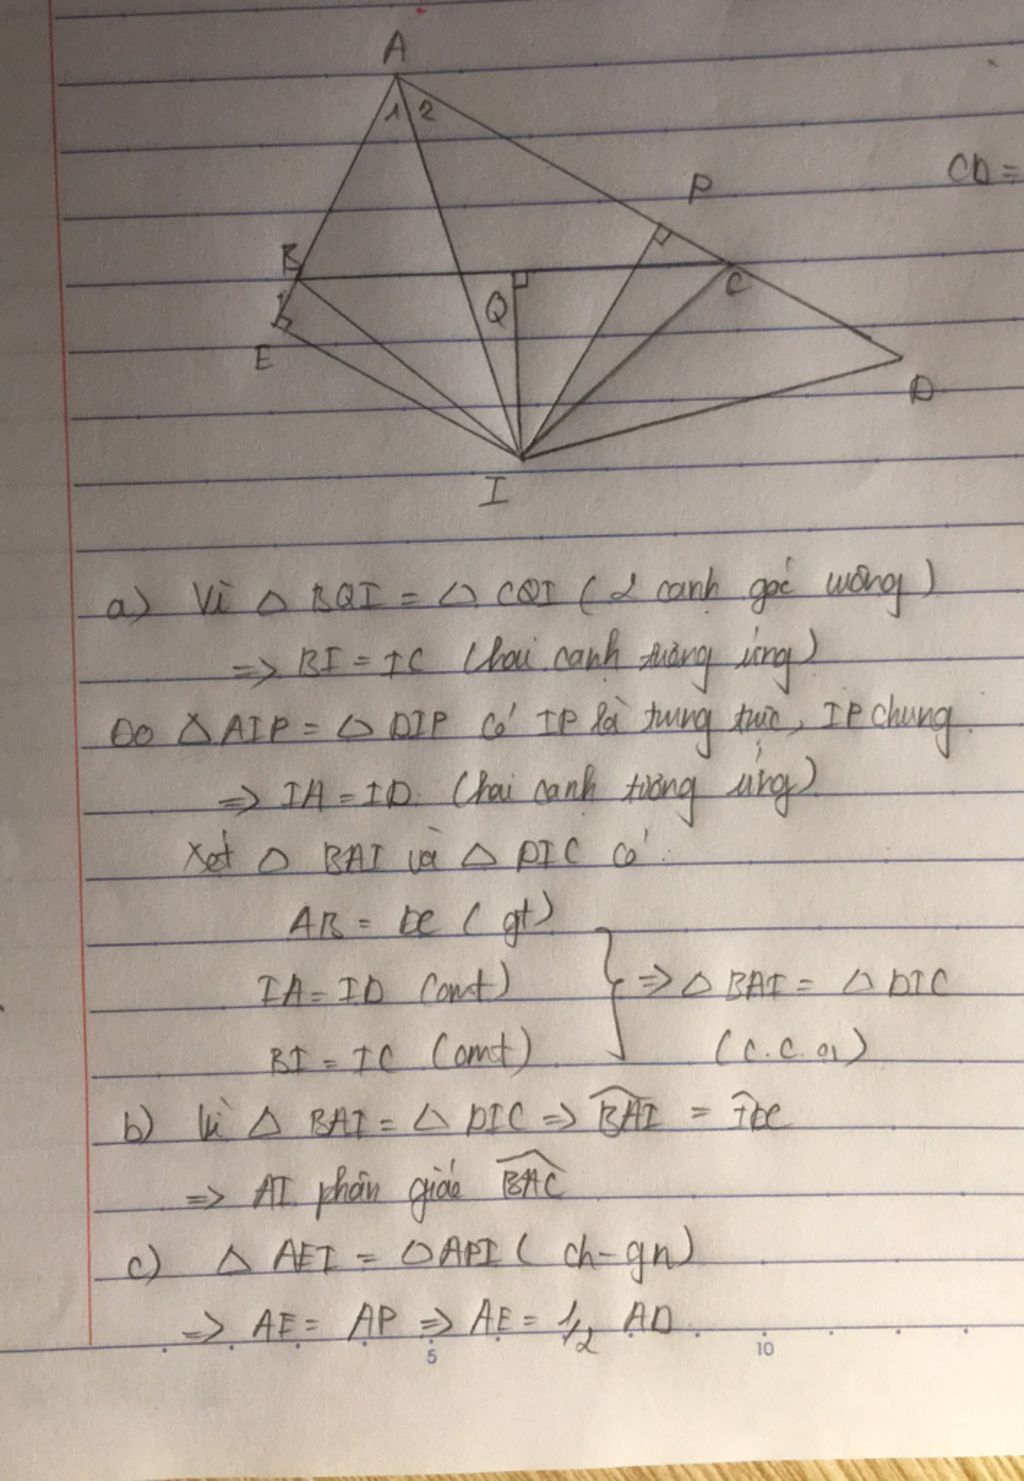 A
1 2
P
CD =
B
C
Q
E
D
I
a) Vì △ BQI = △ CQI ( 2 cạnh góc vuông )
=> BI = IC (hai cạnh tương ứng)
Do △ AIP = △ DIP có IP là trung trực, IP chung.
=> IA = ID. (hai cạnh tương ứng)
Xét △ BAI và △ DIC có:
AB = DC ( gt)
IA = ID (cmt)
=> △ BAI = △ DIC
BI = IC (cmt)
( c.c.c )
b) Vì △ BAI = △ DIC => BAI = IDC
=> AI phân giác BAC
c) △ AEI = △ API ( ch-gn)
=> AE = AP => AE = 1/2 AD.
5
10